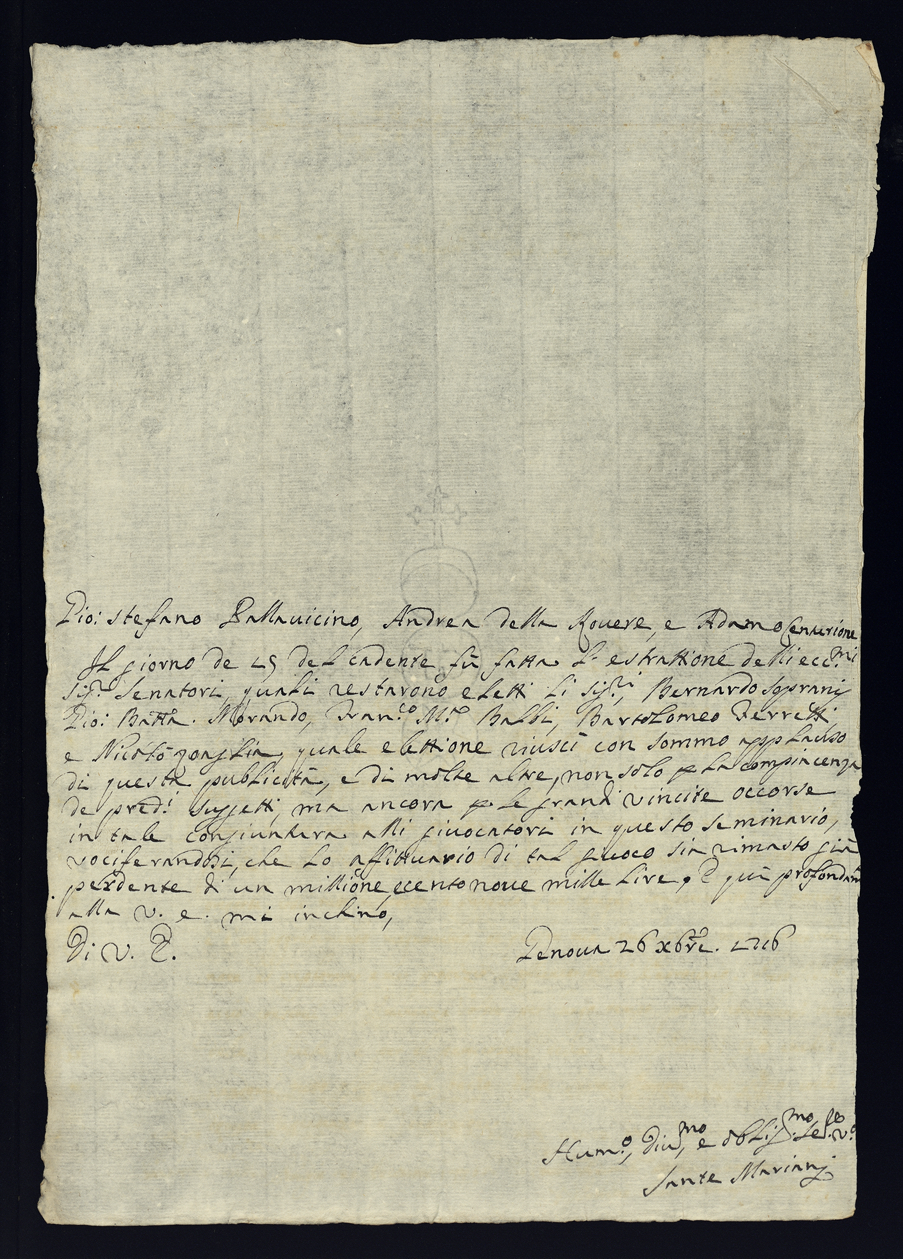 Gio: Stefano Pallavicino, Andrea della Rovere, e Adamo Centurione
Il giorno de 15 del cadente fù fatta l'estrattione delli ecc:mi
Sig:ri Senatori, quali restarono eletti li Sig:ri Bernardo Soprani
Gio: Batt:a Morando, Fran:co M:a Balbi, Bartolomeo Ferretti
e Nicolò Zoaglia, quale elettione riuscì con sommo applauso
di questa publicità, e di molte altre, non solo p la compiacenza
de pred:i suggetti, ma ancora p le grandi vincite occorse
in tale congiuntura alli giuocatori in questo seminario,
vociferandosi, che lo affittuario di tal giuoco sia rimasto già
perdente di un millione, e cento nove mille lire, E quì profondam
alla V. E. mi inchino,
Di V. E. Genova 26 Xbre. 1716
Hum:o, Div:mo, e oblig:mo Se:re V:o
Sante Mariani